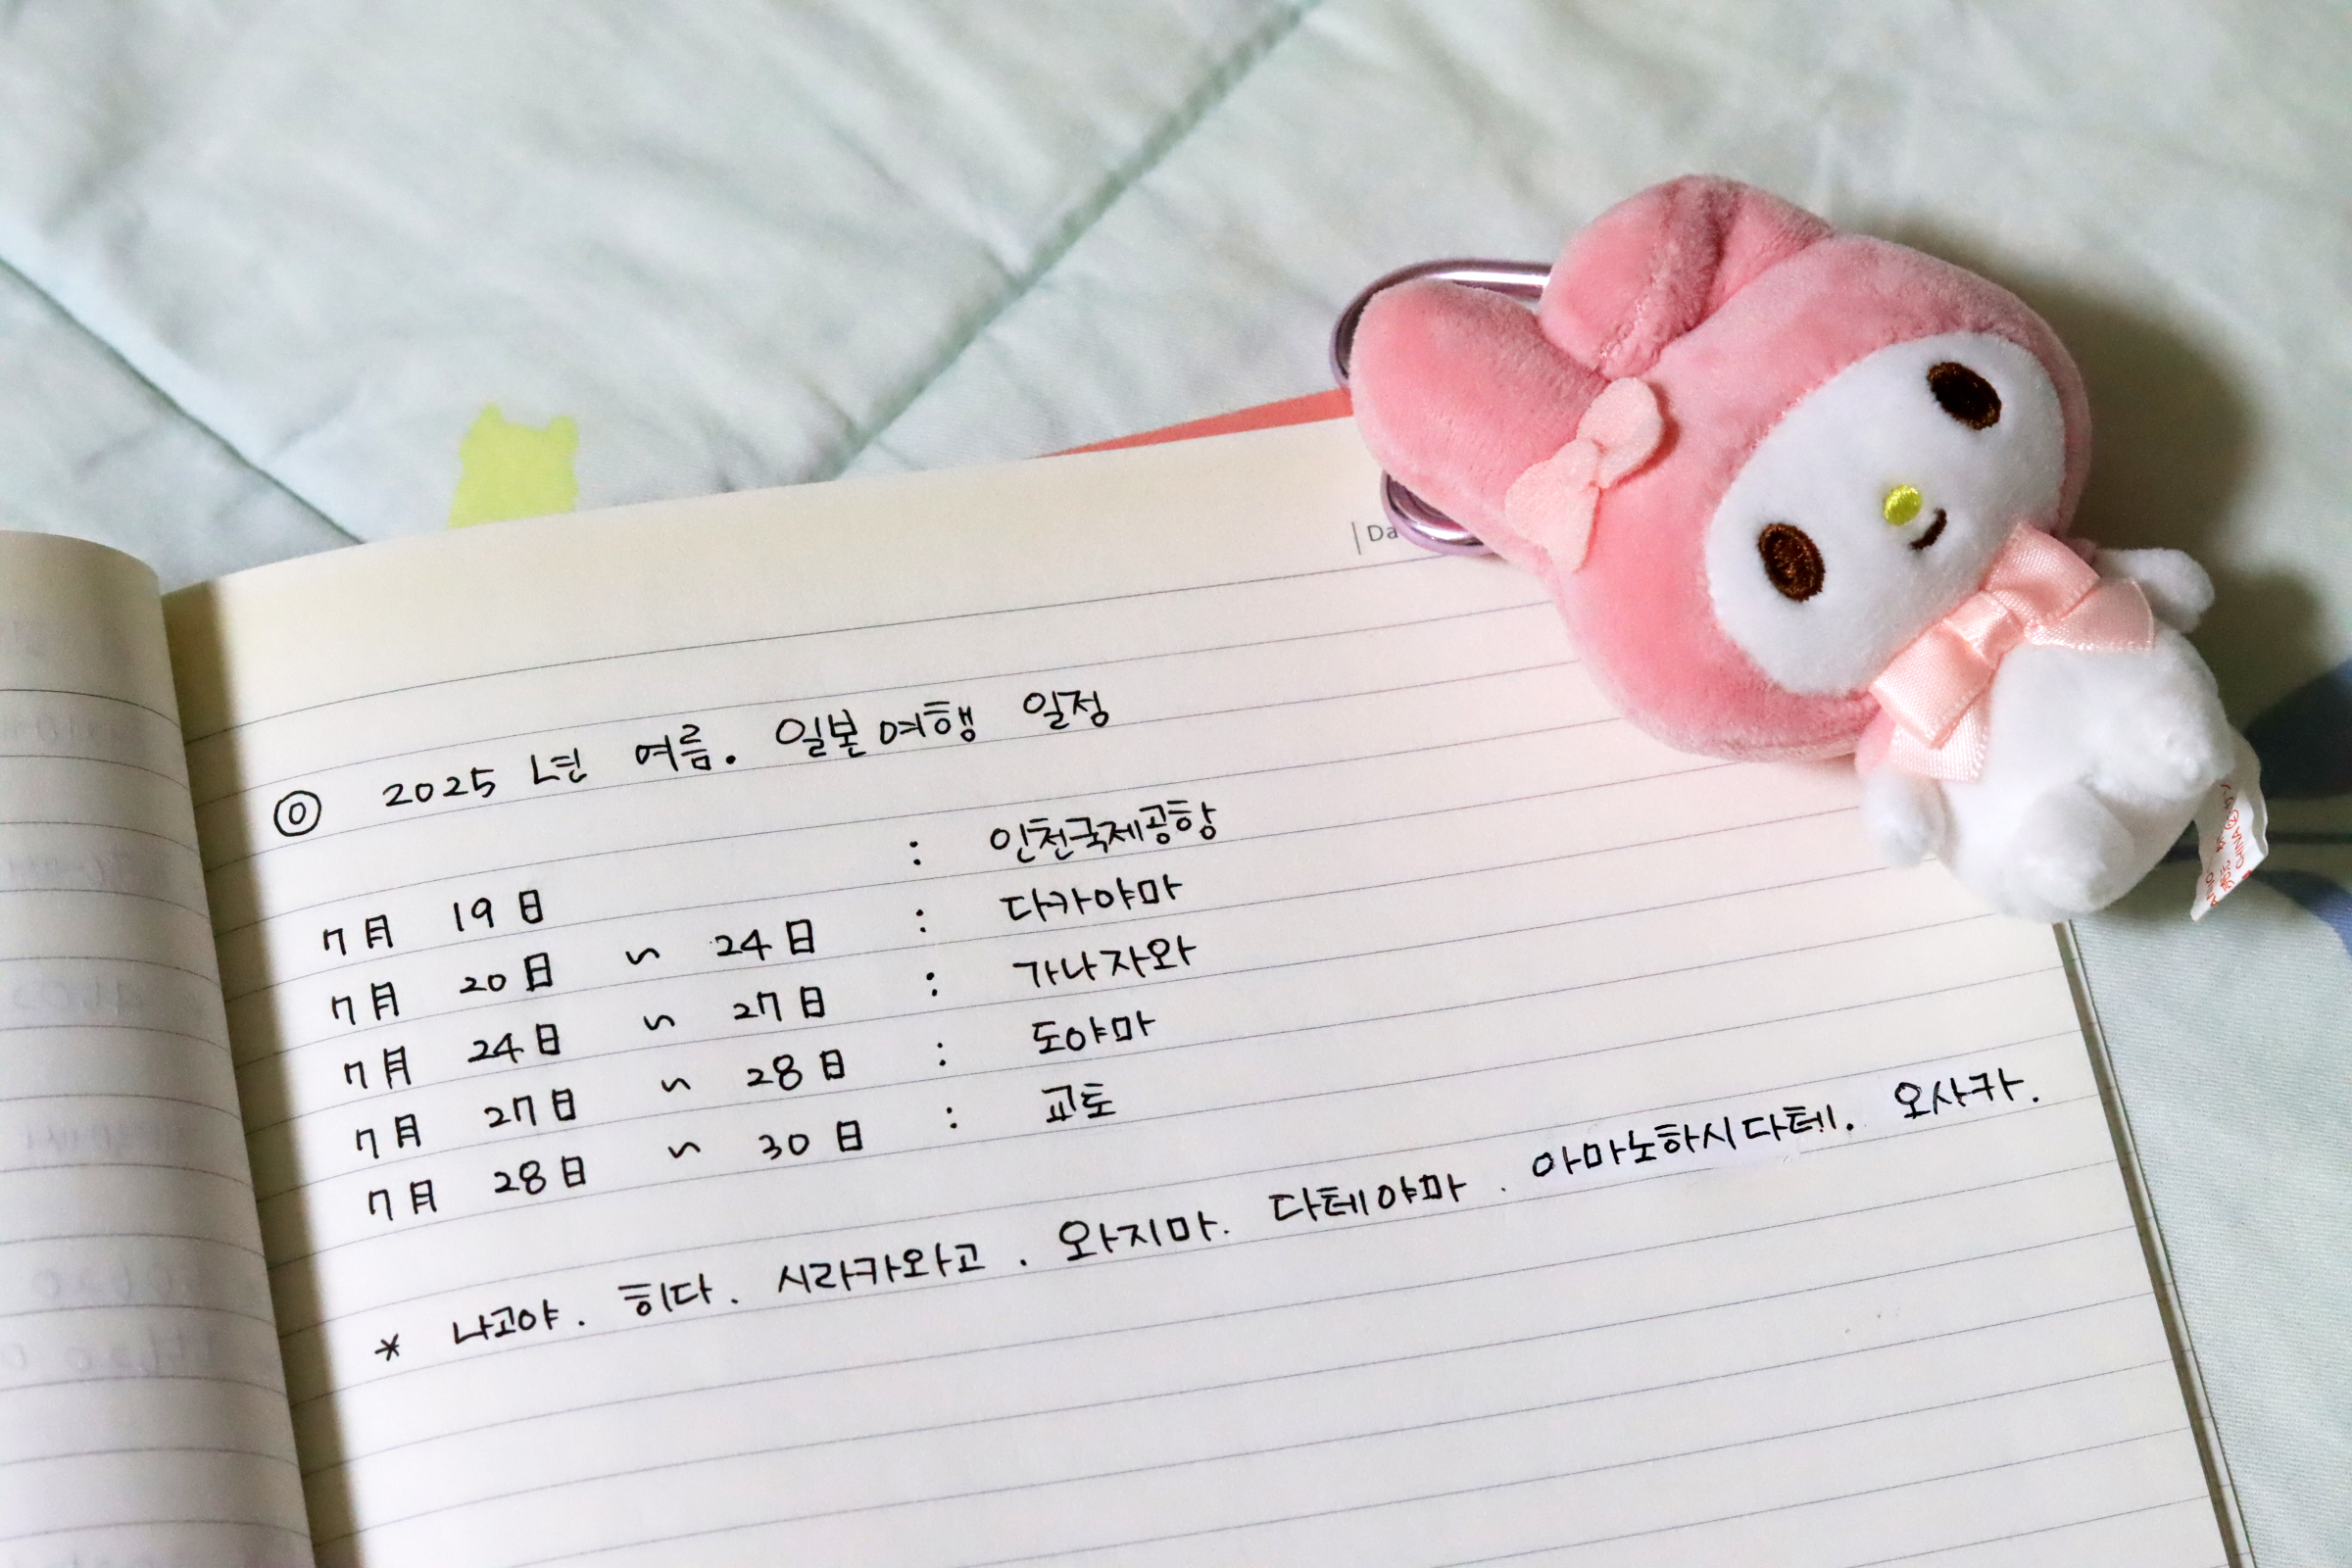 Da
◎ 2025년 여름. 일본여행 일정
7月 19日 : 인천국제공항
7月 20日 ~ 24日 : 다카야마
7月 24日 ~ 27日 : 가나자와
7月 27日 ~ 28日 : 도야마
7月 28日 ~ 30日 : 교토
* 나고야. 히다. 시라카와고. 와지마. 다테야마. 아마노하시다테. 오사카.
CHINA